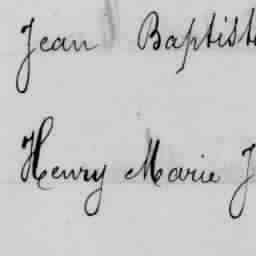 Jean Baptist
Henry Marie J